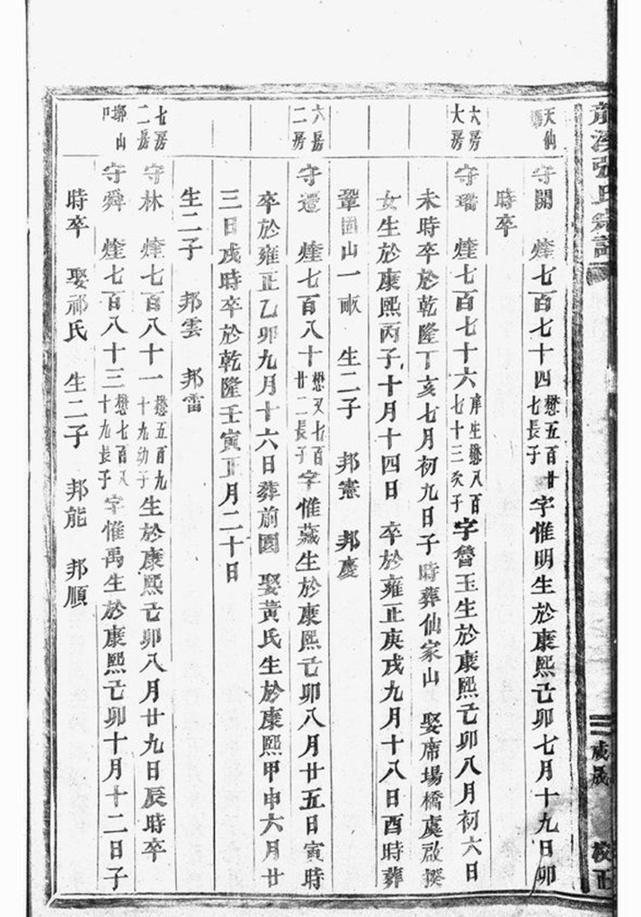 張氏宗譜
二
咸晟
校正
天仙
守開 煃七百七十四懋五百廿七長子字惟明生於康熙己卯七月十九日卯
時卒
六房大房
守瑞 煃七百七十六庠生懋八百七十三次子字魯玉生於康熙己卯八月初六日
未時卒於乾隆丁亥七月初九日子時葬仙家山 娶席場橋虞啟撰
女生於康熙丙子十月十四日 卒於雍正庚戌九月十八日酉時葬
鞏固山一畝 生二子 邦憲 邦慶
六房二房
守遷 煃七百八十懋又七百廿二長子字惟 生於康熙己卯八月廿五日寅時
卒於雍正乙卯九月十六日葬前園 娶黃氏生於康熙甲申六月廿
三日戌時卒於乾隆壬寅正月二十日
生二子 邦雲 邦雷
七房二房
守林 煃七百八十一懋五百九十九幼子生於康熙己卯八月廿九日辰時卒
山
守舜 煃七百八十三懋七百又十九長子字惟禹生於康熙己卯十月十二日子
時卒 娶祁氏 生二子 邦能 邦順